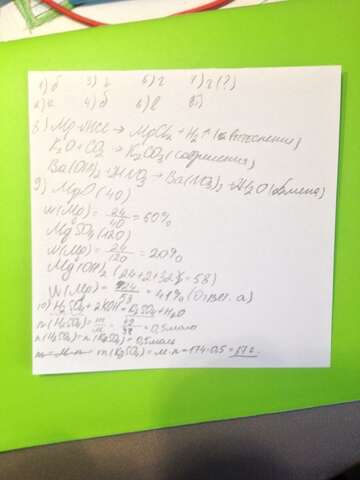 1) б 3) г 5) г 7) г (?)
2) а 4) б 6) в
8) Mg+HCl → MgCl₂ + H₂↑ (вытеснения)
K₂O + CO₂ → K₂CO₃ (соединения)
Ba(OH)₂ + HNO₃ → Ba(NO₃)₂ + H₂O (обмена)
9) MgO (40)
w(Mg) = 24/40 = 60%
MgSO₄ (120)
w(Mg) = 24/120 = 20%
Mg(OH)₂ (24+2+32 = 58)
w(Mg) = 24/58 = 41% (Ответ. а)
10) H₂SO₄ + 2KOH = K₂SO₄ + H₂O
n(H₂SO₄) = m/M = 49/98 = 0,5 моль
n(H₂SO₄) = n(K₂SO₄) = 0,5 моль
m(K₂SO₄) = M·n = 174·0,5 = 87 г.